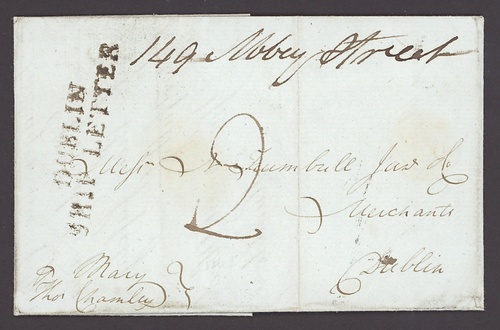 149 Abbey Street
DUBLIN
SHIP LETTER
2
Messrs Turnbull Junr & Co
Merchants
Dublin
Mary
Thos Chamley